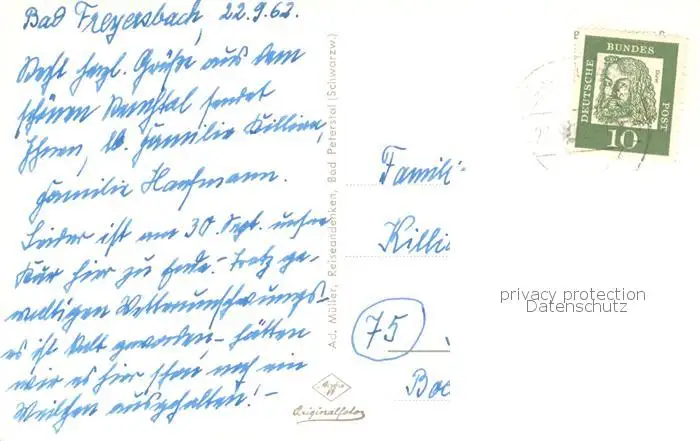 Bad Freyersbach, 22.9.62.
Recht herzl. Grüße aus dem
schönen Renchtal sendet
Ihnen, lb. Familie Killian,
Familie Haufmann.
Leider ist am 30 Sept. unsre
Kur hier zu Ende. Trotz ge-
waltigen Wetterumschwungs-
es ist kalt geworden - hätten
wir es hier schon noch ein
Weilchen ausgehalten! -
Ad. Müller, Reiseandenken, Bad Peterstal (Schwarzw.)
Originalfoto
Famili
Killi
75
Bo
DEUTSCHE
BUNDES
POST
Dürer
10
privacy protection
Datenschutz